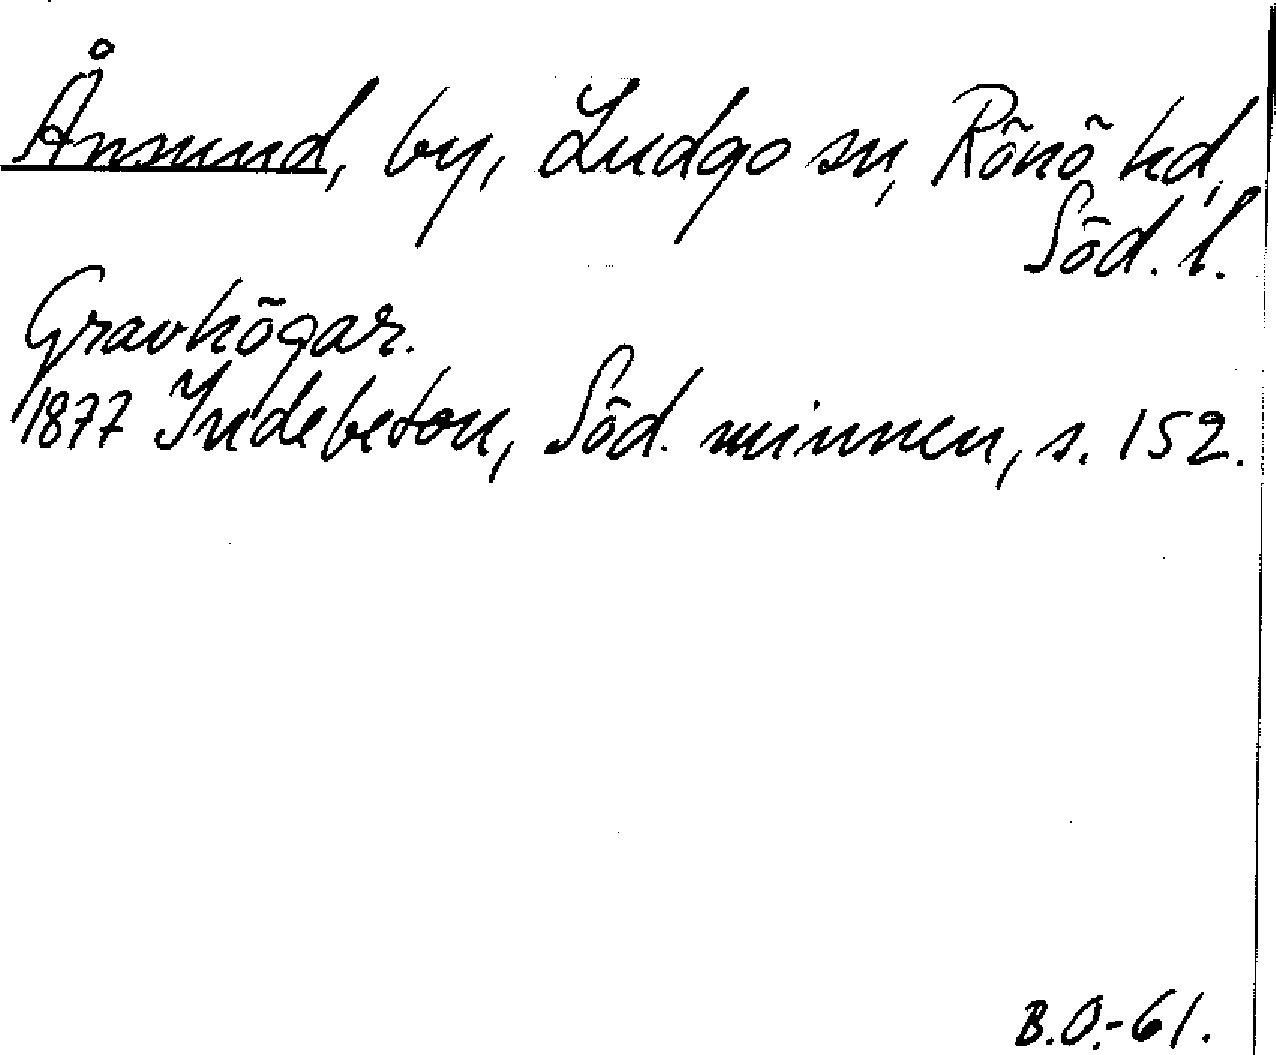 Ånsund, by, Ludgo sn, Rönö hd,
Söd. l.
Gravhögar.
1877 Indebetou, Söd. minnen, s. 152.
B.O.-61.